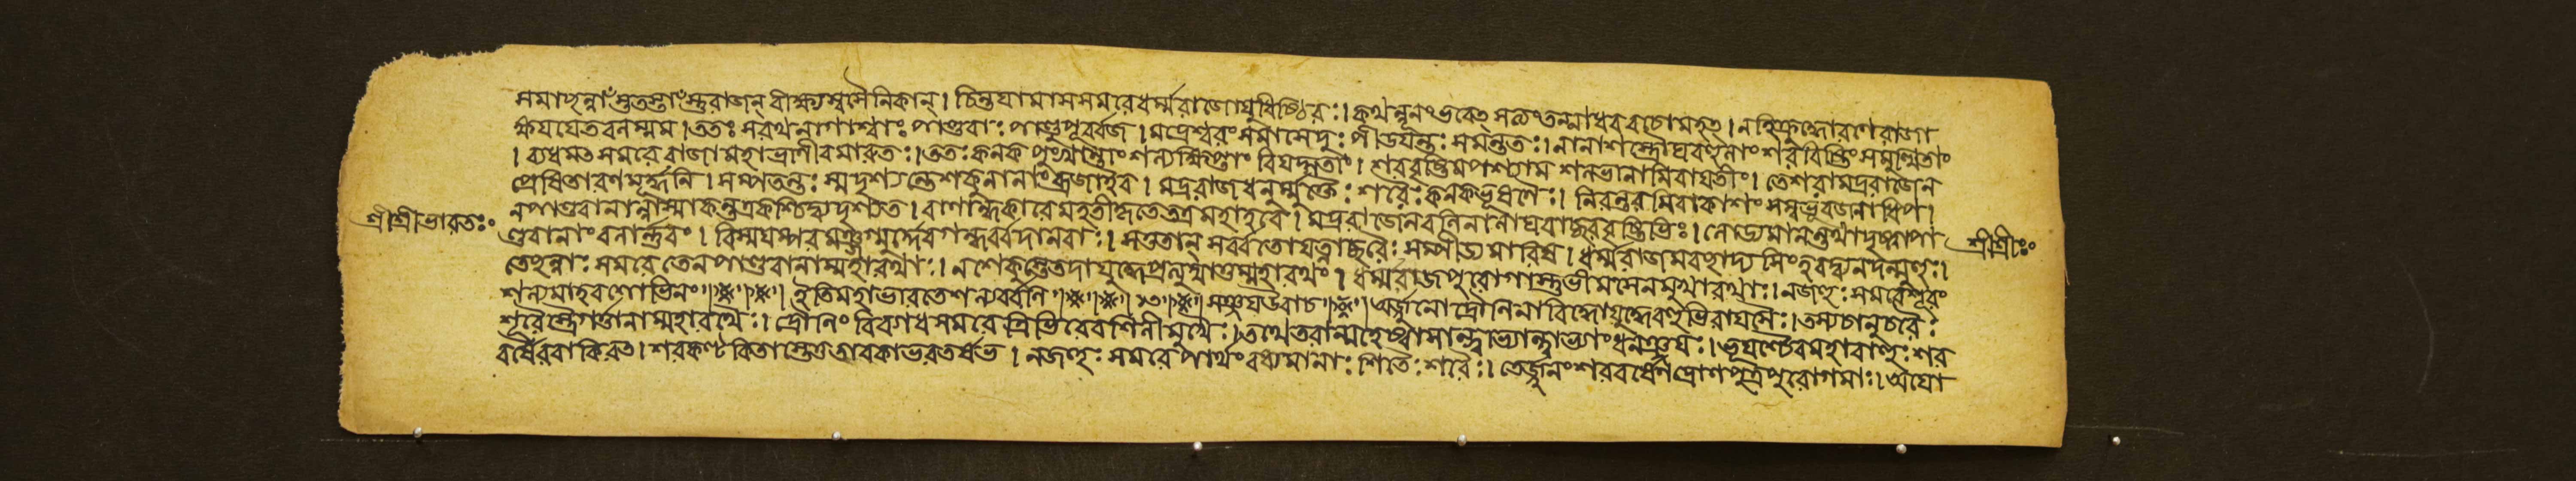 সমাহন্নাঁস্ততস্তাঁস্তুরাজন্ বীক্ষ্যস্বসৈনিকান্। চিন্তয়ামাসসমরেধর্ম্মরাজোযুধিষ্ঠিরঃ। কথন্নুনংভবেৎ সত্যংতন্মাধববচোমহৎ। নহিক্রুদ্ধোরণেরাজা
ক্ষয়য়েতবলম্মম। ততঃ সরথনাগাশ্বাঃ পাণ্ডবাঃ পাণ্ডুপূর্ব্বজ। মদ্রেশ্বরং সমাসেদুঃ পীডয়ন্তঃ সমন্ততঃ। নানাশস্ত্রৌঘবহুলাং শরবৃষ্টিং সমুত্থিতাং
। ব্যধমৎ সমরে রাজা মহাভ্রাণীবমারুতঃ। ততঃ কনকপুঙ্খান্তাং শল্যক্ষিপ্তাং বিয়দ্গতাং। শরবৃষ্টিমপশ্যাম শলভানামিবায়তীং। তেশরামদ্ররাজেন
প্রেষিতারণমূর্দ্ধনি। সম্পতন্তঃ স্মদৃশ্যন্তেশকুনানাংব্রজাইব। মদ্ররাজধনুর্ম্মুক্তৈঃ শরৈঃ কনকভূষণৈঃ। নিরন্তরমিবাকাশং সম্বভূবজনাধিপ।
শ্রীশ্রীভারতঃ
নপাণ্ডবানান্নাস্মাকন্তত্রকশ্চিদ্ব্যদৃশ্যত। বাণান্ধকারেমহতীকৃতেতত্রমহাহবে। মদ্ররাজেনবলিনালাঘবাচ্ছরবৃষ্টিভিঃ। লোড্যমানন্তথাদৃষ্ট্বাপা
ণ্ডবানাং বলার্ন্নবং। বিস্ময়ম্পরমঞ্জগ্মুর্দ্দেবগন্ধর্ব্বদানবাঃ। সতুতান্ সর্ব্বতোযত্নাচ্ছরৈঃ সম্পীড্যমারিষ। ধর্ম্মরাজমবচ্ছাদ্য সিংহবদ্ব্যনদন্মুহুঃ।
শ্রীশ্রীঃ
তেচ্ছন্নাঃ সমরে তেনপাণ্ডবানাম্মহারথাঃ। নশেকুস্তেতদাযুদ্ধেপ্রত্যুদ্যাতুম্মহারথং। ধর্ম্মরাজপুরোগাস্তুভীমসেনমুখারথাঃ। নজহুঃ সমরেশূরং
শল্যমাহবশোভিনং॥ ইতিমহাভারতেশল্যপর্ব্বণি ॥ ১৩ ॥ সঞ্জয়উবাচ॥ অর্জ্জুনোদ্রৌণিনাবিদ্ধোযুদ্ধেবহুভিরায়সৈঃ। তস্যচানুচরৈঃ
শূরৈস্ত্রৈগর্ত্তানাম্মহারথৈঃ। দ্রৌণিং বিব্যাধসমরে ত্রিভিরেবশিলীমুখৈঃ। তথেতরান্মহেষ্বাসান্দ্বাভ্যান্দ্বাভ্যাংধনঞ্জয়ঃ। ভূয়শ্চৈবমহাবাহুঃ শর
বর্ষৈরবাকিরৎ। শরকণ্টকিতাস্তেতুতাবকাভরতর্ষভ। নজহুঃ সমরে পার্থং বধ্যমানাঃ শিতৈঃ শরৈঃ। তের্জ্জুনংশরবর্ষেণদ্রোণপুত্রপুরোগমাঃ। অয়ো